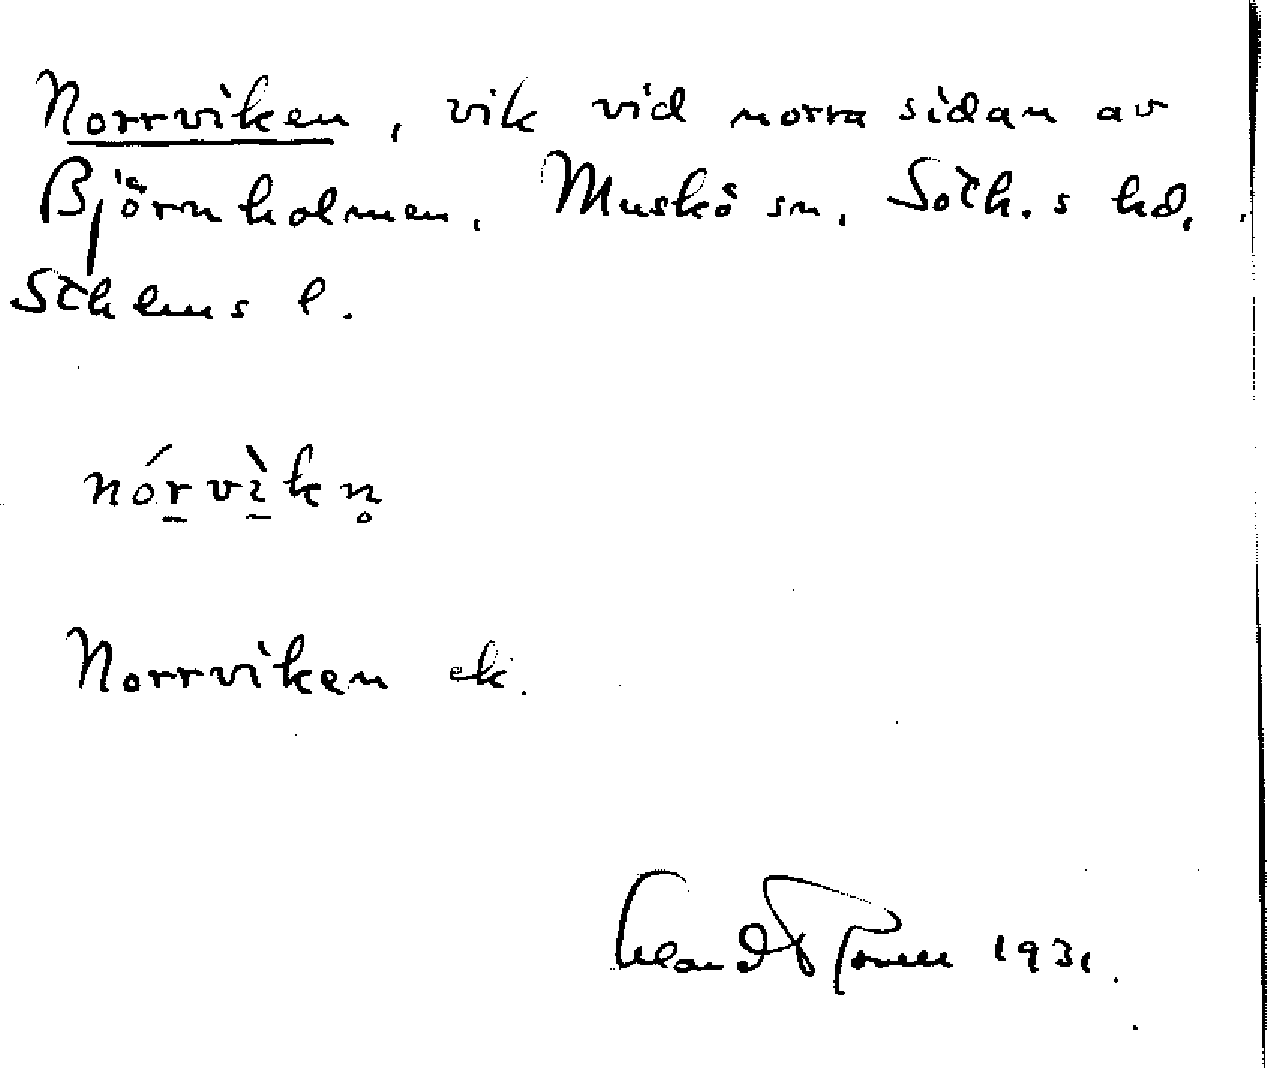 Norrviken, vik vid norra sidan av
Björnholmen. Muskö sn. Soth.s hd.
Sthems l.
nórvìkn̥
Norrviken ek.
1931.